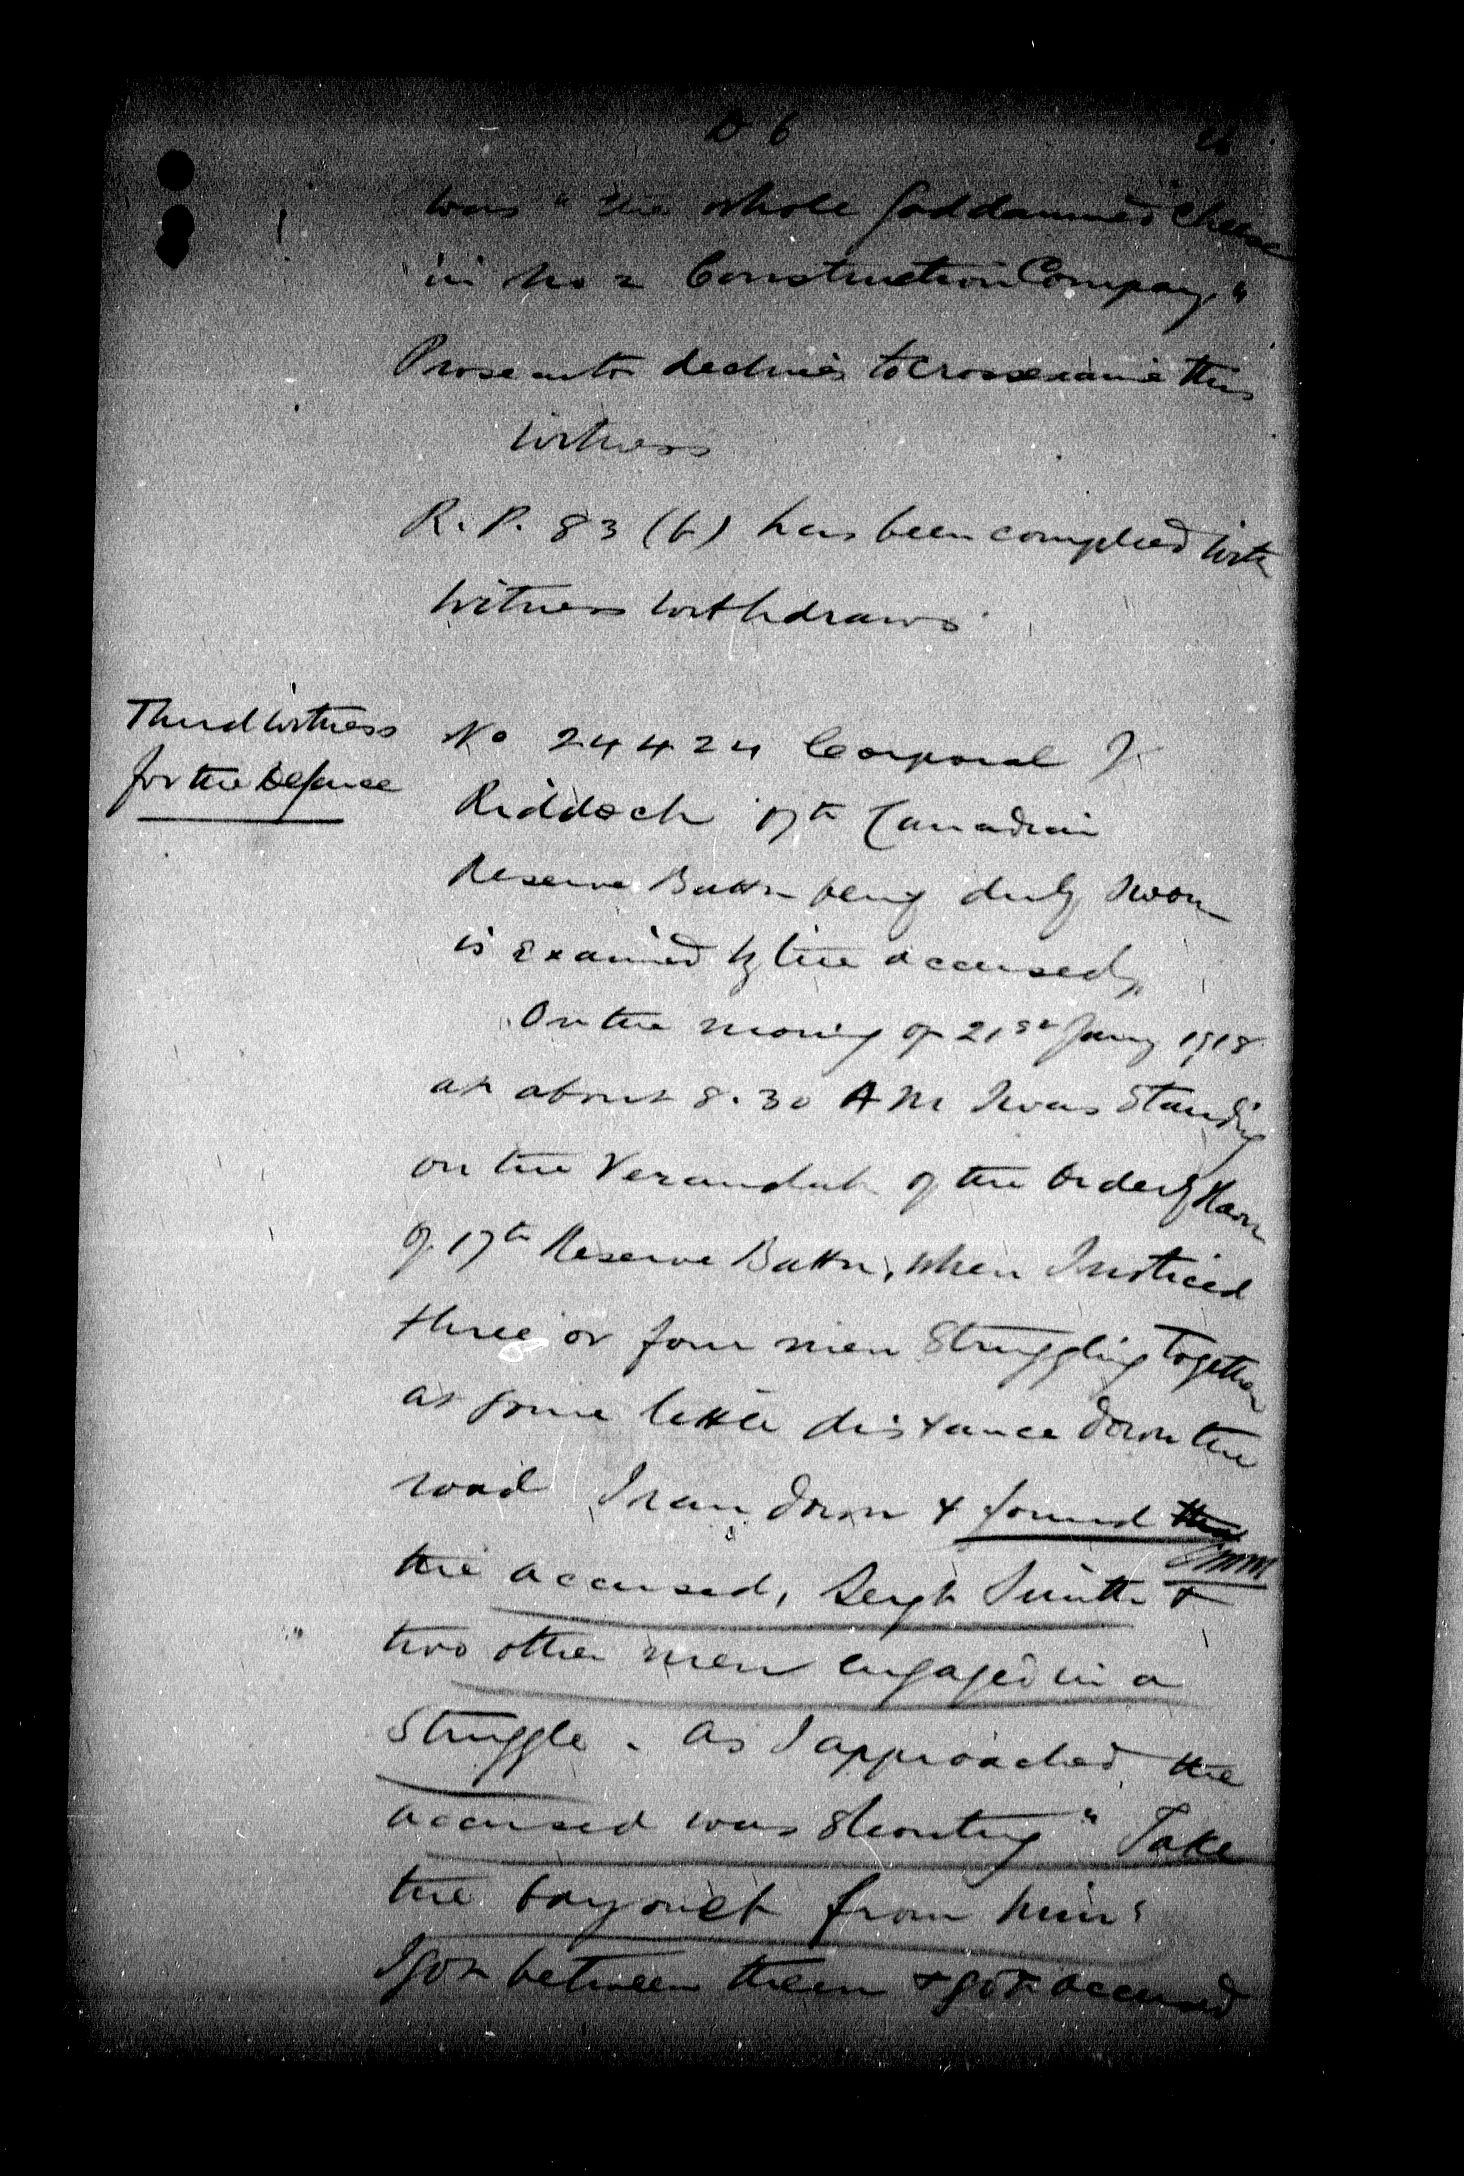 D 6
was "the whole Goddammed Cheese
in No 2 Construction Company."
Prosecutor declines to Crossexamine this
witness
R.P. 83 (b) has been complied with
Witness withdraws.
Third Witness
for the Defence
No 24424 Corporal J
Riddoch 17th Canadian
Reserve Battn being duly sworn
is examined by the accused,
On the morning of 21st Jany 1918
at about 8.30 AM I was Standing
on the Verandah of the Orderly Room
of 17th Reserve Battn, when I noticed
three or four men Struggling together
at some little distance down the
road I ran down & found
the accused, Sergt Smith &
two other men engaged in a
Struggle. As I approached the
accused was Shouting "Take
the bayonet from him"
I got between them & got accused